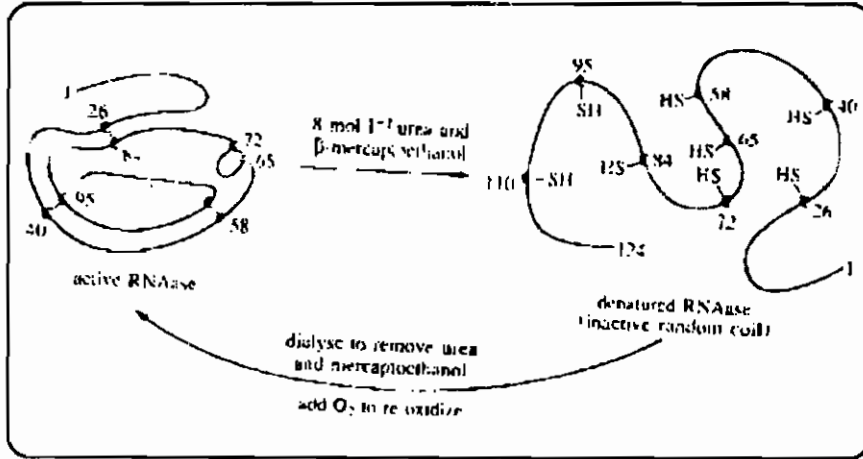 1
26
72
65
95
40
58
active RNAase
8 mol l⁻¹ urea and
β-mercaptoethanol
95
SH
110
-SH
HS
84
124
HS
58
HS
65
HS
72
HS
40
HS
26
1
denatured RNAase
(inactive random coil)
dialyse to remove urea
and mercaptoethanol
add O₂ to re oxidize